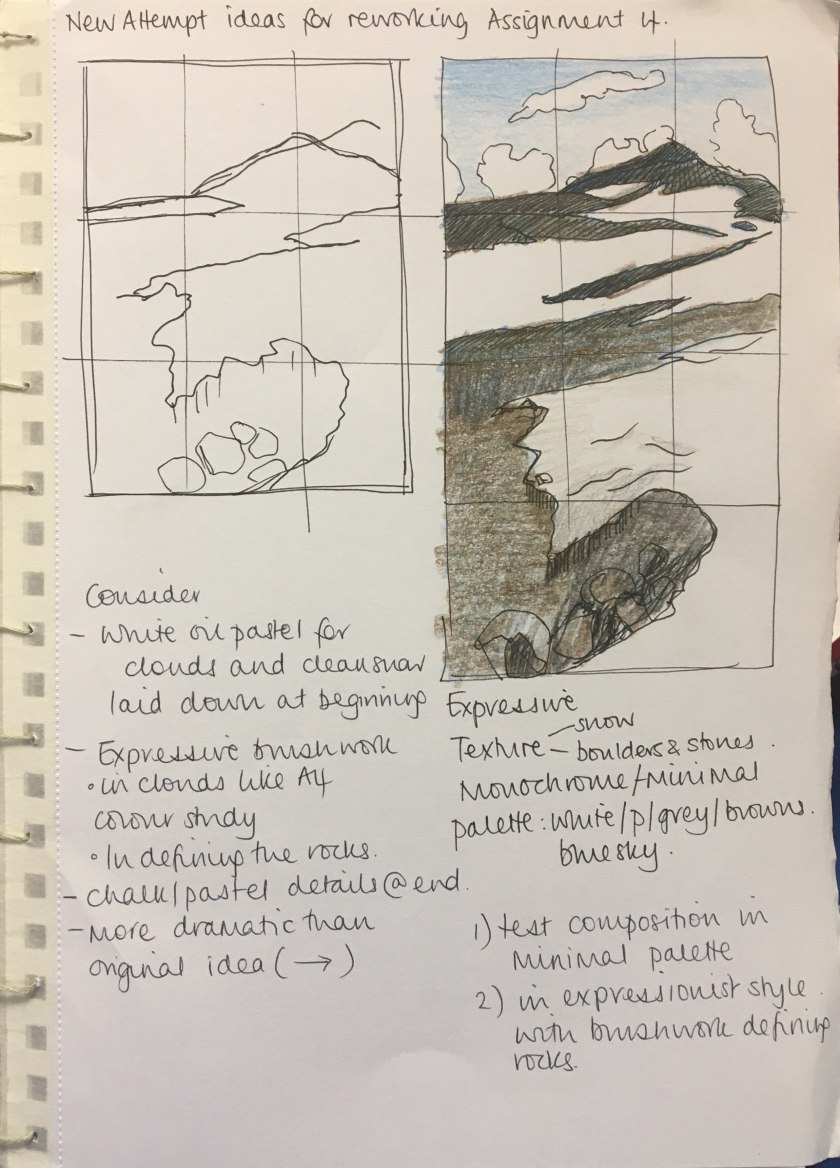 New Attempt ideas for reworking Assignment 4.
Consider
- White oil pastel for
clouds and clean snow
laid down at beginning
- Expressive brushwork
• in clouds like A4
colour study
• In defining the rocks.
- chalk/pastel details @ end.
- More dramatic than
original idea (→)
Expressive
Texture - snow
- boulders & stones.
Monochrome/Minimal
palette: white/p/grey/browns.
blue sky.
1) test composition in
minimal palette
2) in expressionist style.
with brushwork defining
rocks.